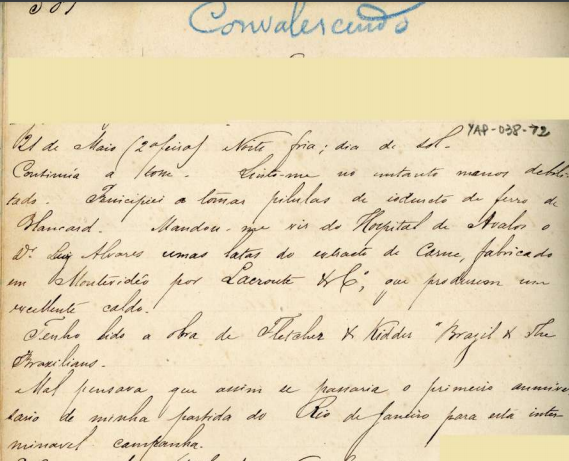 301
Convalescendo
YAP-038-72
21 de Maio (2ª feira) Noite fria; dia de sol.
Continúa a tosse. Sinto-me no entanto menos debili-
tado. Principiei a tomar pilulas de iodureto de ferro de
Blancard. Mandou-me vir do Hospital de Avalos o
Dr. Luiz Alvares umas latas do extracto de Carne, fabricado
em Montevidéo por Lacroute & Cª, que produzem um
excellente caldo.
Tenho lido a obra de Fletcher & Kidder "Brazil & The
Brazilians.
Mal pensava que assim se passaria o primeiro anniver
sario de minha partida do Rio de Janeiro para esta inter
minavel campanha.